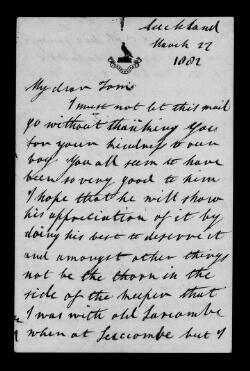 Auckland
March 27
1882
My dear Tom
I must not let this mail
go without thanking you
for your kindness to our
boy. You all seem to have
been so very good to him
I hope that he will show
his appreciation of it by
doing his best to deserve it
and amongst other things
not be the thorn in the
side of the keeper that
I was with old
when at Seccombe but I